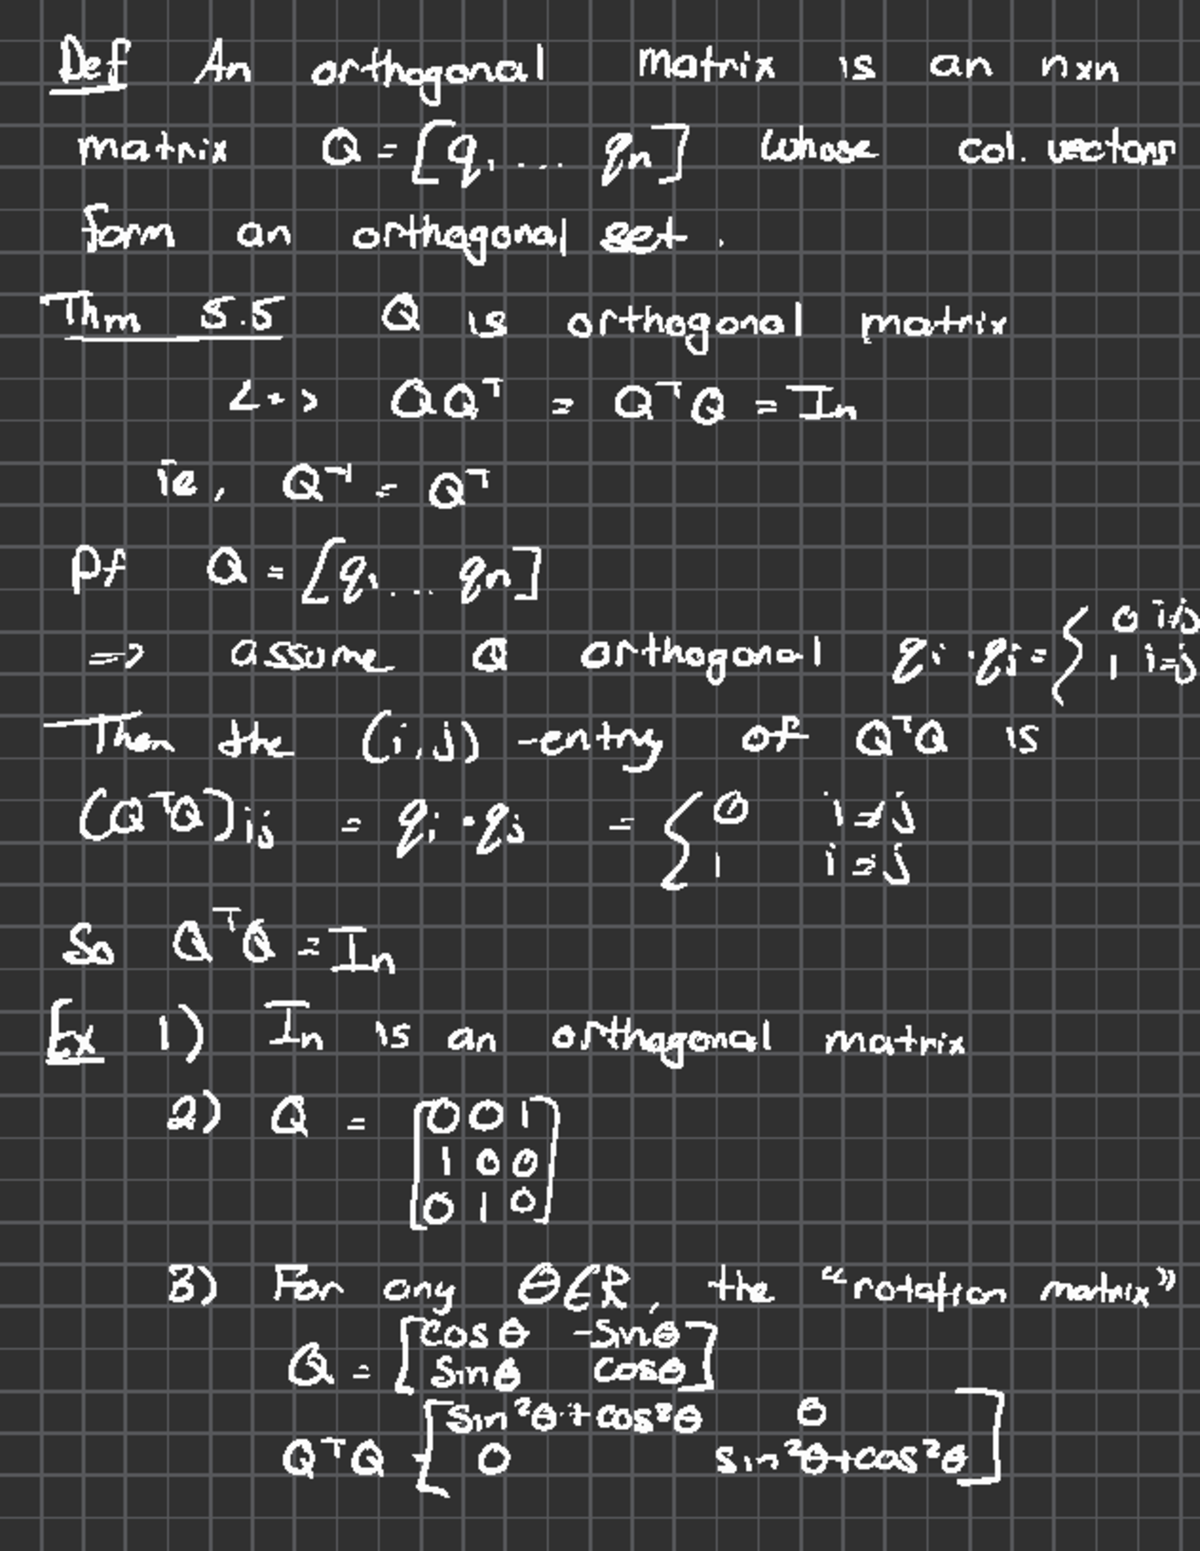 Def An orthogonal matrix is an nxn
matrix Q = [q₁ ... qn] whose col. vectors
form an orthogonal set.
Thm 5.5 Q is orthogonal matrix
<=> QQᵀ = QᵀQ = In
ie, Q⁻¹ = Qᵀ
Pf Q = [q₁ ... qn]
=> assume Q orthogonal qi · qj = { 0 i≠j
1 i=j
Then the (i,j) -entry of QᵀQ is
(QᵀQ)ij = qi · qj = { 0 i≠j
1 i=j
So QᵀQ = In
Ex 1) In is an orthagonal matrix
2) Q = [0 0 1
1 0 0
0 1 0]
3) For any θ∈R, the "rotation matrix"
Q = [cosθ -sinθ
sinθ cosθ]
QᵀQ = [sin²θ + cos²θ 0
0 sin²θ+cos²θ]